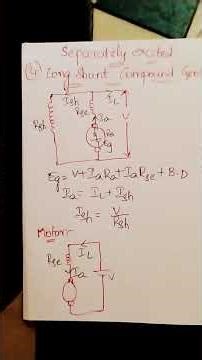 Separately excited
(4) Long Shunt Compound Gen
Ish
IL
Rse
Rsh
Ia
Ra
Eg
V
Eg = V + IaRa + IaRse + B.D
Ia = IL + Ish
Ish = V/Rsh
Motor
IL
Rse
Ia
V